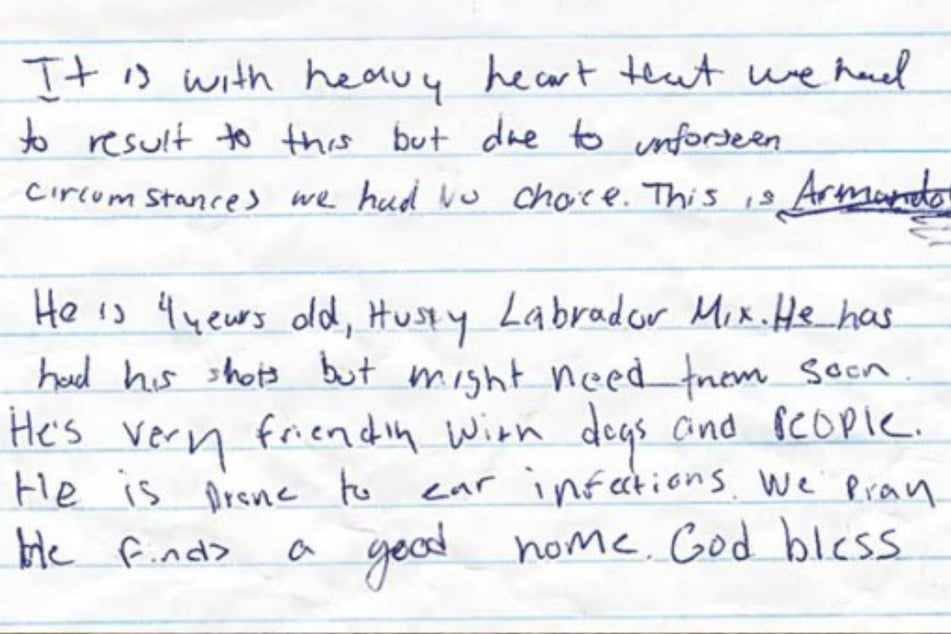 It is with heavy heart that we had
to result to this but due to unforseen
circumstances we had no choice. This is Armando
He is 4 years old, Husky Labrador Mix. He has
had his shots but might need them soon.
He's very friendly with dogs and people.
He is prone to ear infections. We pray
He finds a good home. God bless